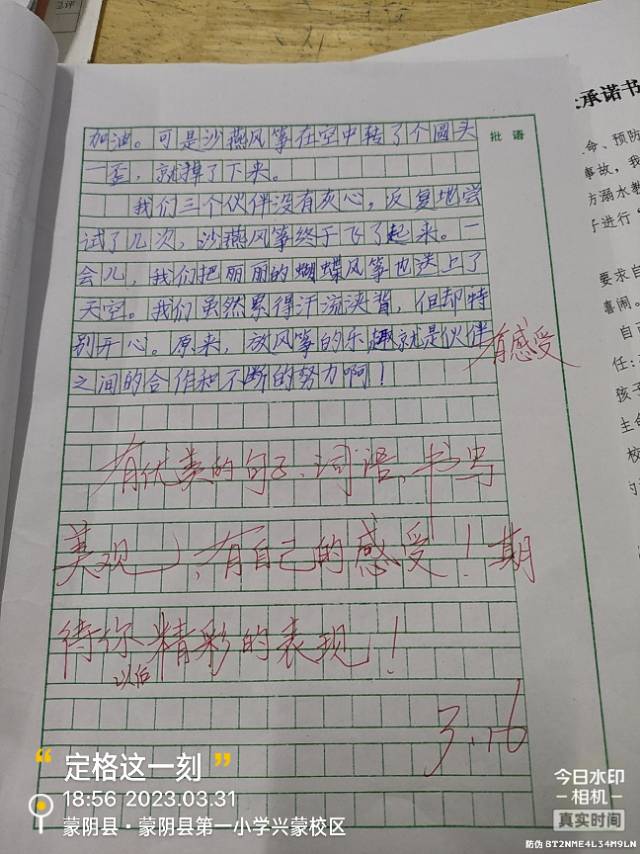 三评
加油。可是沙燕风筝在空中转了个圆头
一歪，就掉了下来。
我们三个伙伴没有灰心，反复地尝
试了几次，沙燕风筝终于飞了起来。一
会儿，我们把丽丽的蝴蝶风筝也送上了
天空。我们虽然累得汗流浃背，但却特
别开心。原来，放风筝的乐趣就是伙伴
之间的合作和不断的努力啊！
批语
有感受
有优美的句子、词语，书写
美观，有自己的感受！期
待你以后精彩的表现！
3.16
承诺书
命、预防
事故，我
方溺水教
子进行
要求自
喜闹。
自
任：
孩子
生命
校
的
“定格这一刻”
18:56 2023.03.31
蒙阴县·蒙阴县第一小学兴蒙校区
今日水印
-相机-
真实时间
防伪 BT2NME4L34M9LN